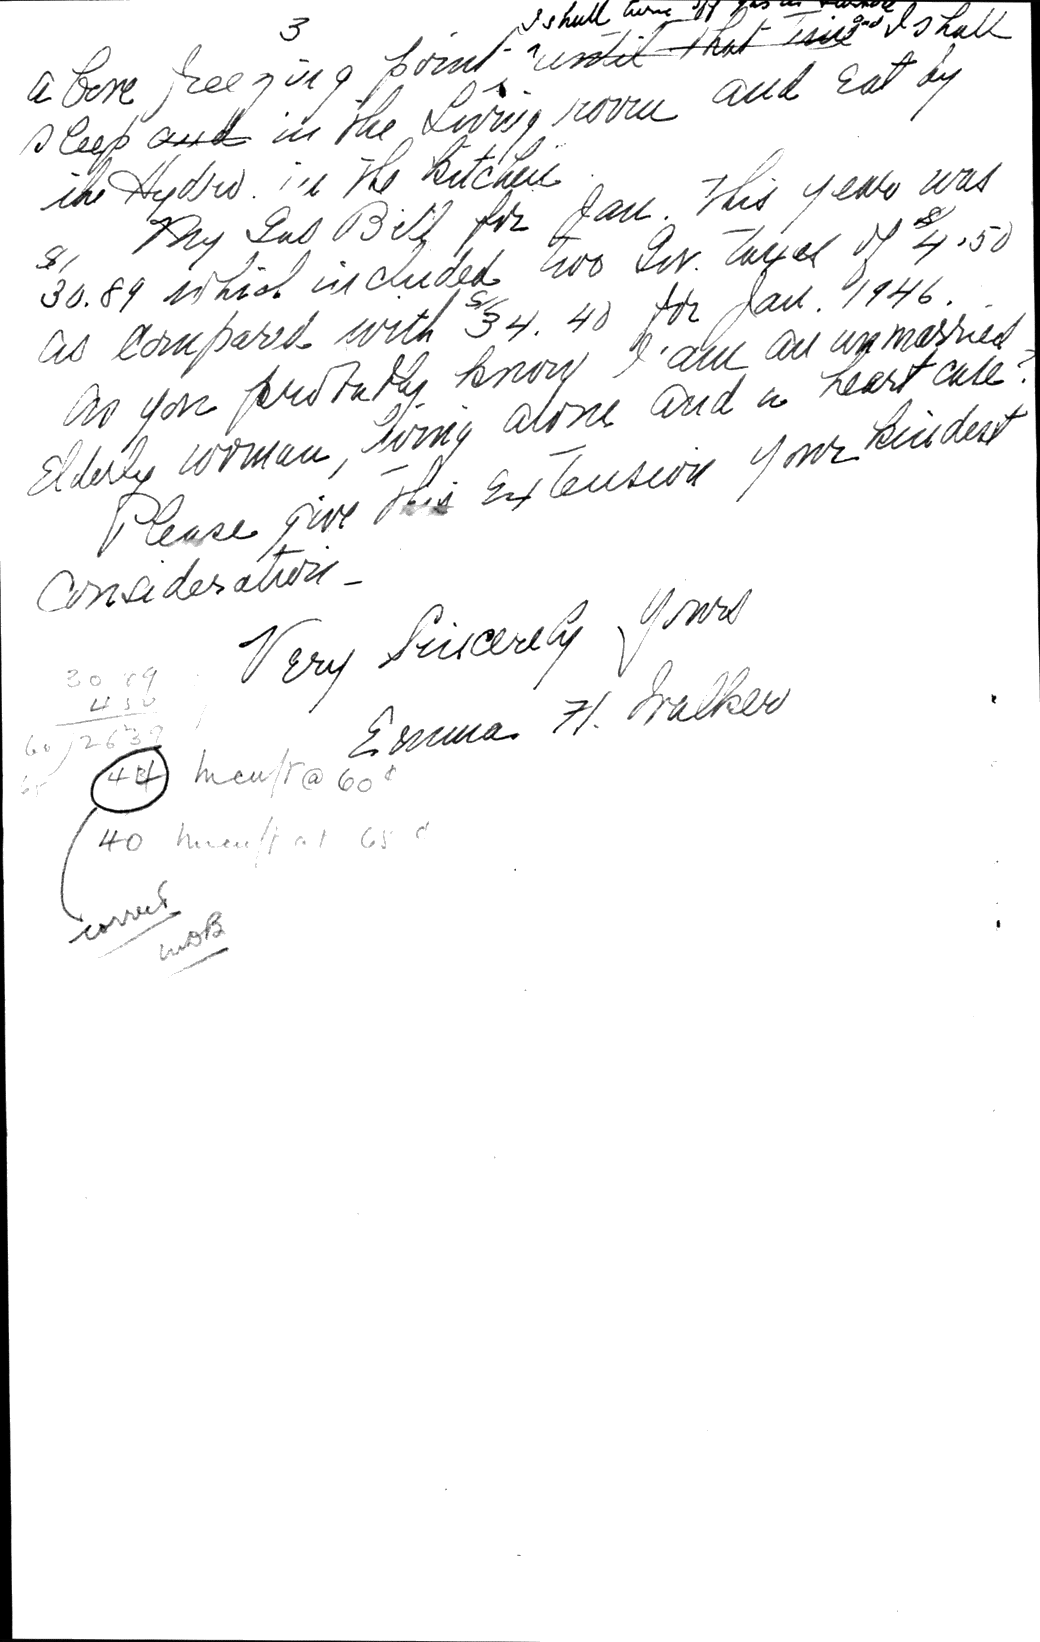 3
I shall turn off gas in furnace
above freezing point, until that time and I shall
sleep and in the Living room and Eat by
the Hydro. in the kitchen.
My Gas Bill for Jan. this year was
$30.89 which included two Gov. taxes of $4.50
as compared with $34.40 for Jan. 1946.
As you probably know I am an unmarried
Elderly woman, living alone and a heart case?
Please give this Extension your kindest
Consideration -
Very Sincerely Yours
Emma H. Walker
30 89
4 50
60 ) 2639
44 mcuft @ 60¢
65
40 mcuft at 65¢
correct